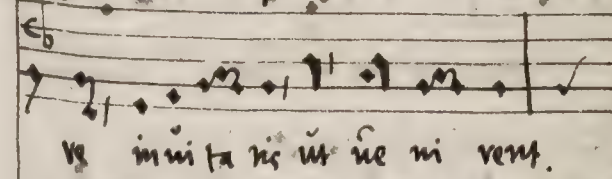 re inui ta ris ut ue ni rent.